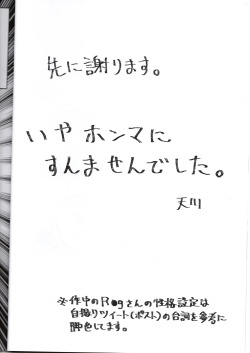 先に謝ります。
いやホンマに
すんませんでした。
天川
※作中のR●gさんの性格設定は
自撮りツイート(ポスト)の台詞を参考に
脚色してます。